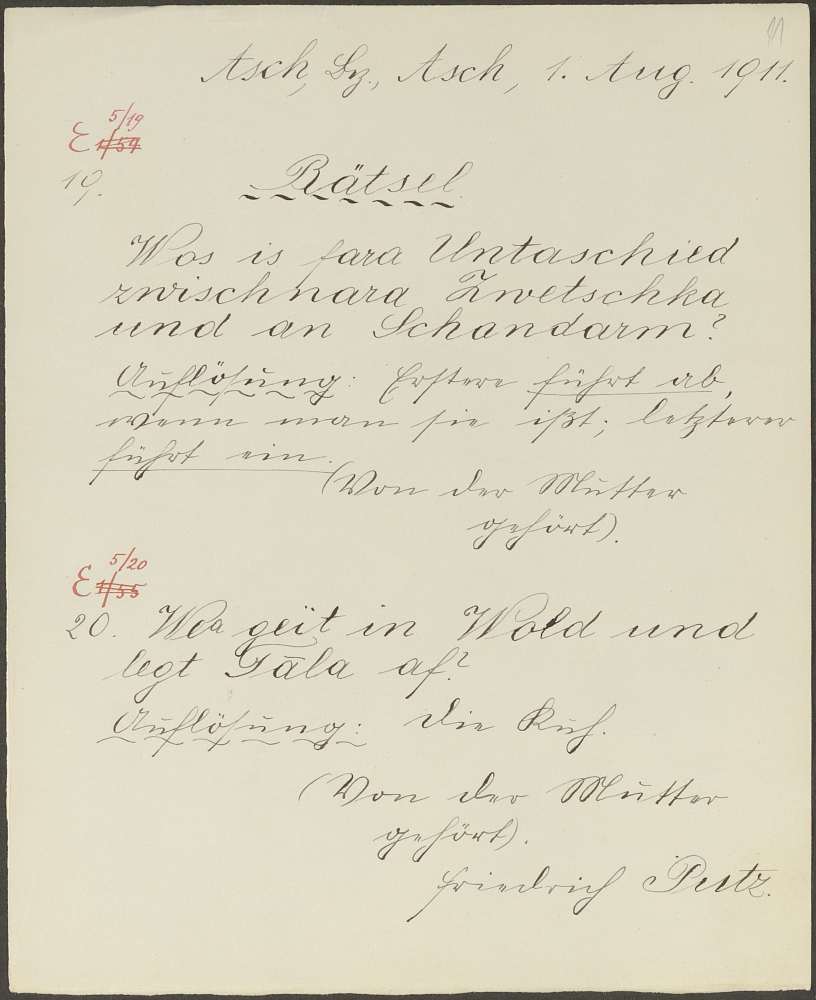 11
Asch, Bz., Asch, 1. Aug. 1911.
5/19
E 1/54
19.
Rätsel.
Wos is fara Untaschied
zwischnara Zwetschka
und an Schandarm?
Auflösung: Erstere führt ab,
wenn man sie ißt; letzterer
führt ein.
(Von der Mutter
gehört).
5/20
E 1/55
20. Wea geït in Wold und
legt Tāla af?
Auflösung: Die Kuh.
(Von der Mutter
gehört).
Friedrich Putz.